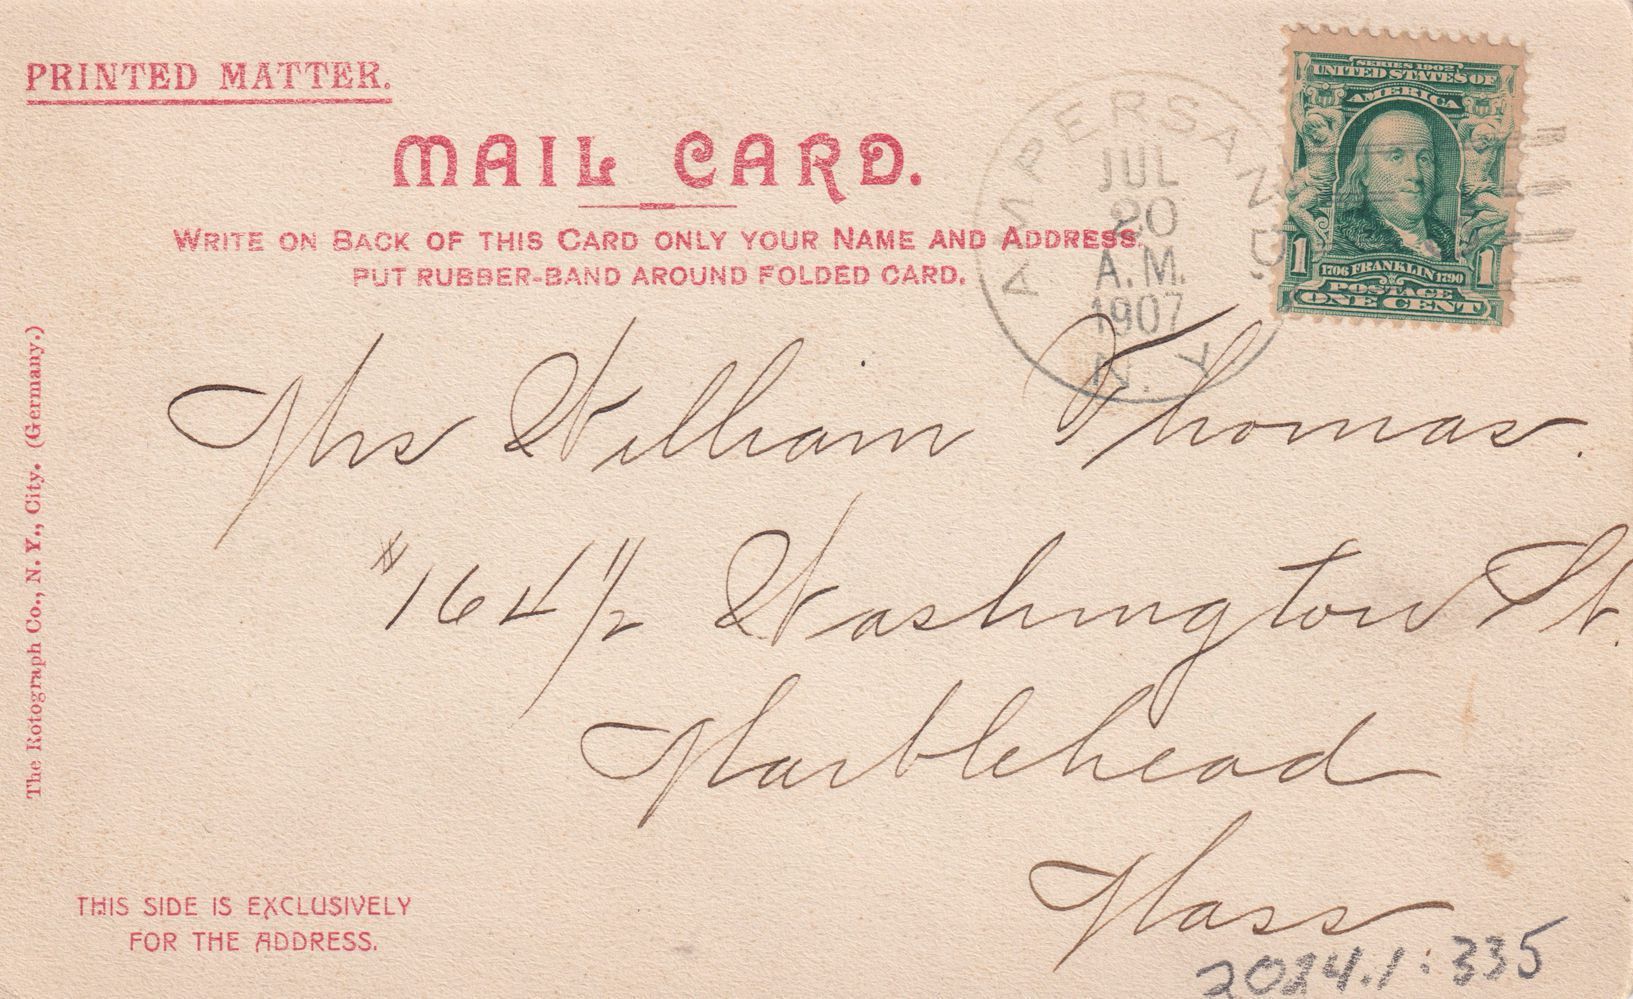 PRINTED MATTER.
MAIL CARD.
WRITE ON BACK OF THIS CARD ONLY YOUR NAME AND ADDRESS.
PUT RUBBER-BAND AROUND FOLDED CARD.
AMPERSAND.
JUL
20
A.M.
1907
N.Y.
SERIES 1902
UNITED STATES OF
AMERICA
1 1706 FRANKLIN 1790 1
POSTAGE
ONE CENT
Mrs William Thomas.
#164 1/2 Washington St.
Marblehead
Mass
The Rotograph Co., N. Y., City. (Germany.)
THIS SIDE IS EXCLUSIVELY
FOR THE ADDRESS.
2024.1.335